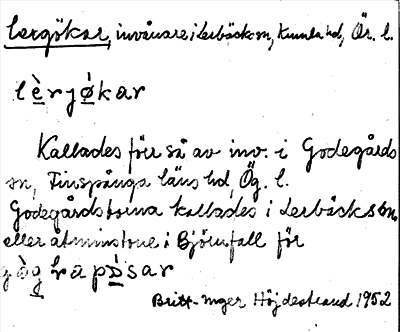 Lergökar, invånare i Lerbäcks sn, Kumla hd, Ör. l.
lèrjø̀kar
Kallades förr så av inv. i Godegårds
sn, Finspånga läns hd, Ög. l.
Godegårdsborna kallades i Lerbäcks sn.
eller åtminstone i Björnfall för
Britt-Inger Höjdestrand 1952